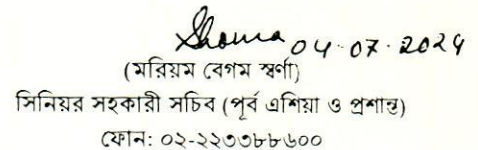 Shoma 04.07.2024
(মরিয়ম বেগম স্বর্ণা)
সিনিয়র সহকারী সচিব (পূর্ব এশিয়া ও প্রশান্ত)
ফোন: ০২-২২৩৩৮৮৬০০